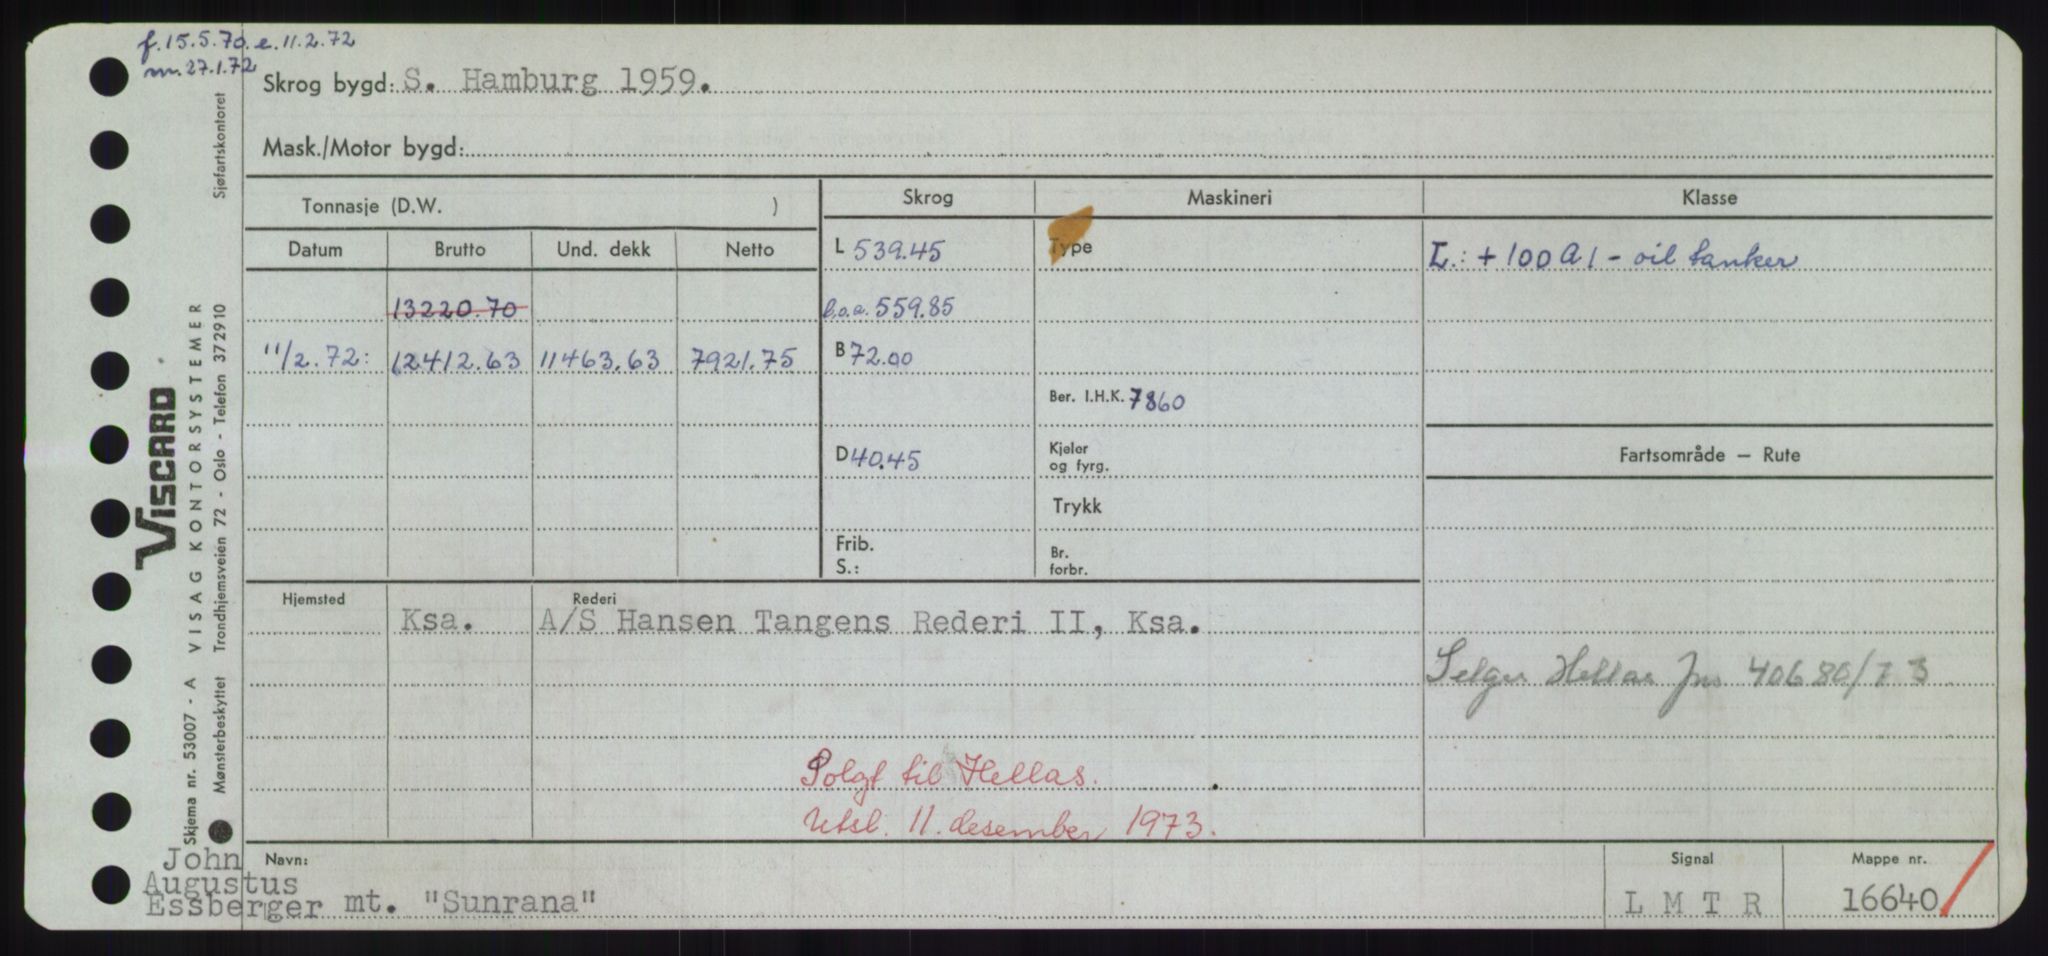 f. 15.5.70. e. 11.2.72
m. 27.1.72
Skrog bygd: S. Hamburg 1959.
Mask./Motor bygd:
Tonnasje (D.W. )
Skrog
Maskineri
Klasse
Datum
Brutto
Und. dekk
Netto
L 539.45
Type
L.: + 100 A 1 - oil tanker
13220.70
l.o.a. 559.85
11/2.72: 12412.63 11463.63 7921.75
B 72.00
Ber. I.H.K. 7860
D 40.45
Kjeler
og fyrg.
Fartsområde — Rute
Trykk
Frib.
S.:
Br.
forbr.
Hjemsted
Rederi
Ksa. A/S Hansen Tangens Rederi II, Ksa.
Selges Hellas Jnr 40680/73
Solgt til Hellas.
Utsl. 11. desember 1973.
John
Augustus
Essberger
Navn:
mt. "Sunrana"
Signal
L M T R
Mappe nr.
16640
VISCARD
Skjema nr. 53007 - A VISAG KONTORSYSTEMER
Mønsterbeskyttet Trondhjemsveien 72 - Oslo - Telefon 372910 Sjøfartskontoret